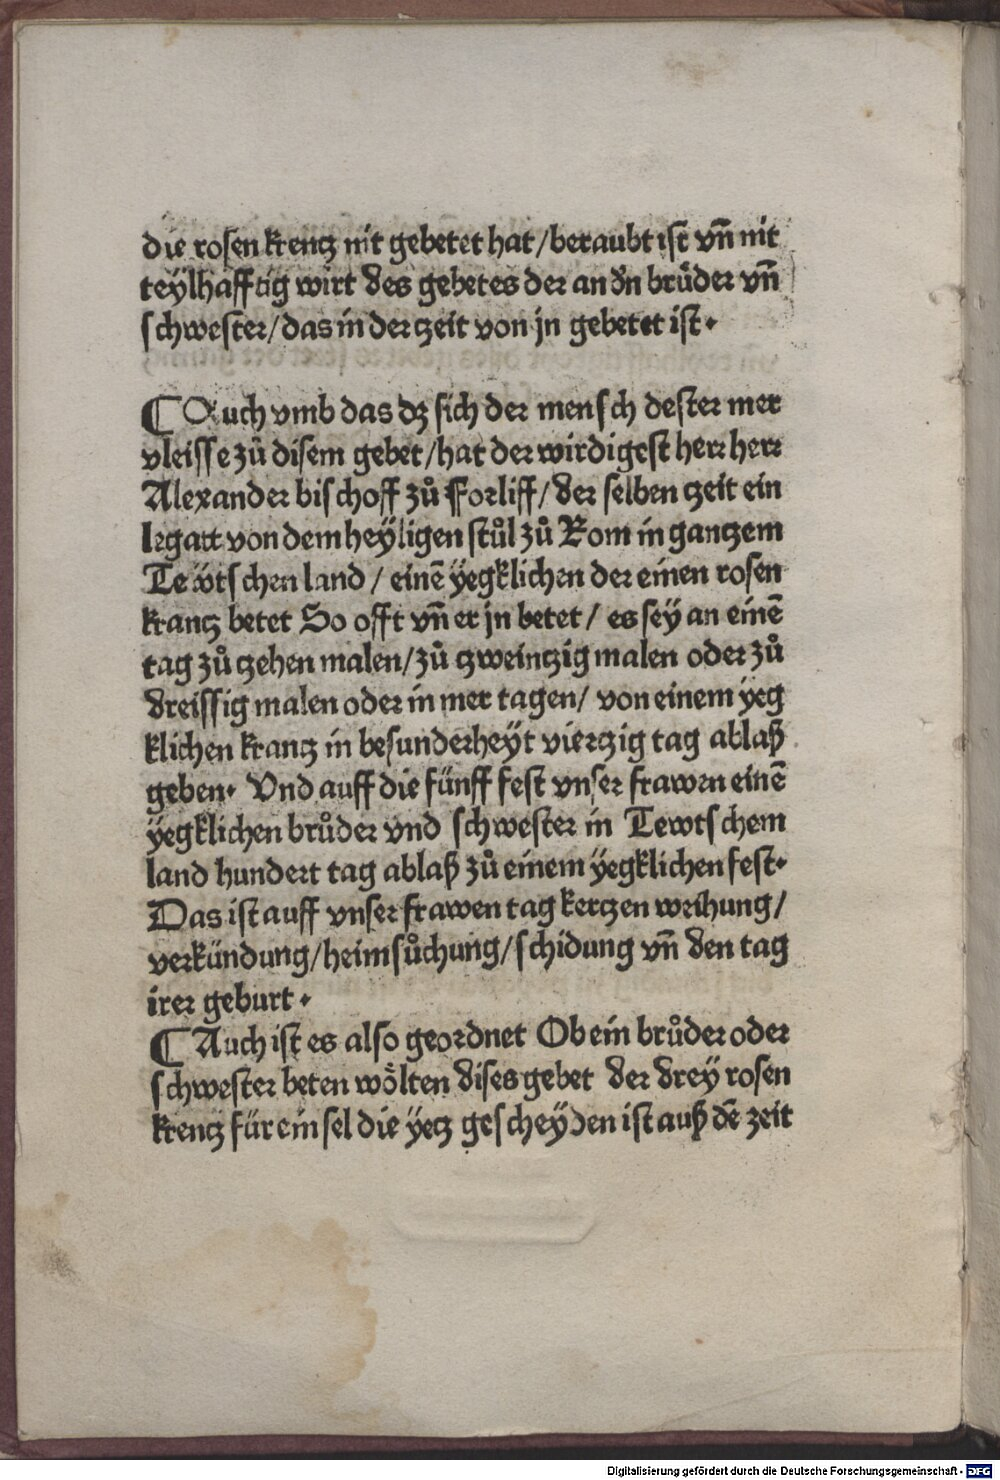 die rosen krentz nit gebetet hat/beraubt ist vn̄ nit
teylhafftig wirt des gebetes der an dn̄ brüder vn̄
schwester/das in der tzeit von jn gebetet ist.
¶ Auch vmb das dz sich der mensch dester mer
vleisse zů disem gebet/hat der wirdigest herr herr
Alexander bischoff zů Forliff/der selben tzeit ein
legatt von dem heyligen stůl zů Rom in gantzem
Tewtschen land/einē yegklichen der einen rosen
krantz betet So offt vn̄ er jn betet/es sey an einē
tag zů tzehen malen/zů tzweintzig malen oder zů
dreissig malen oder in mer tagen/von einem yeg
klichen krantz in besunderheyt viertzig tag ablaß
geben. Vnd auff die fünff fest vnser frawen einē
yegklichen brůder vnd schwester in Tewtschem
land hundert tag ablaß zů einem yegklichen fest.
Das ist auff vnser frawen tag kertzen weihung/
verkündung/heimsůchung/schidung vn̄ den tag
irer geburt.
¶ Auch ist es also geordnet Ob ein brůder oder
schwester beten wölten dises gebet der drey rosen
krentz für ein sel die yetz gescheyden ist auß dē zeit
Digitalisierung gefördert durch die Deutsche Forschungsgemeinschaft - DFG